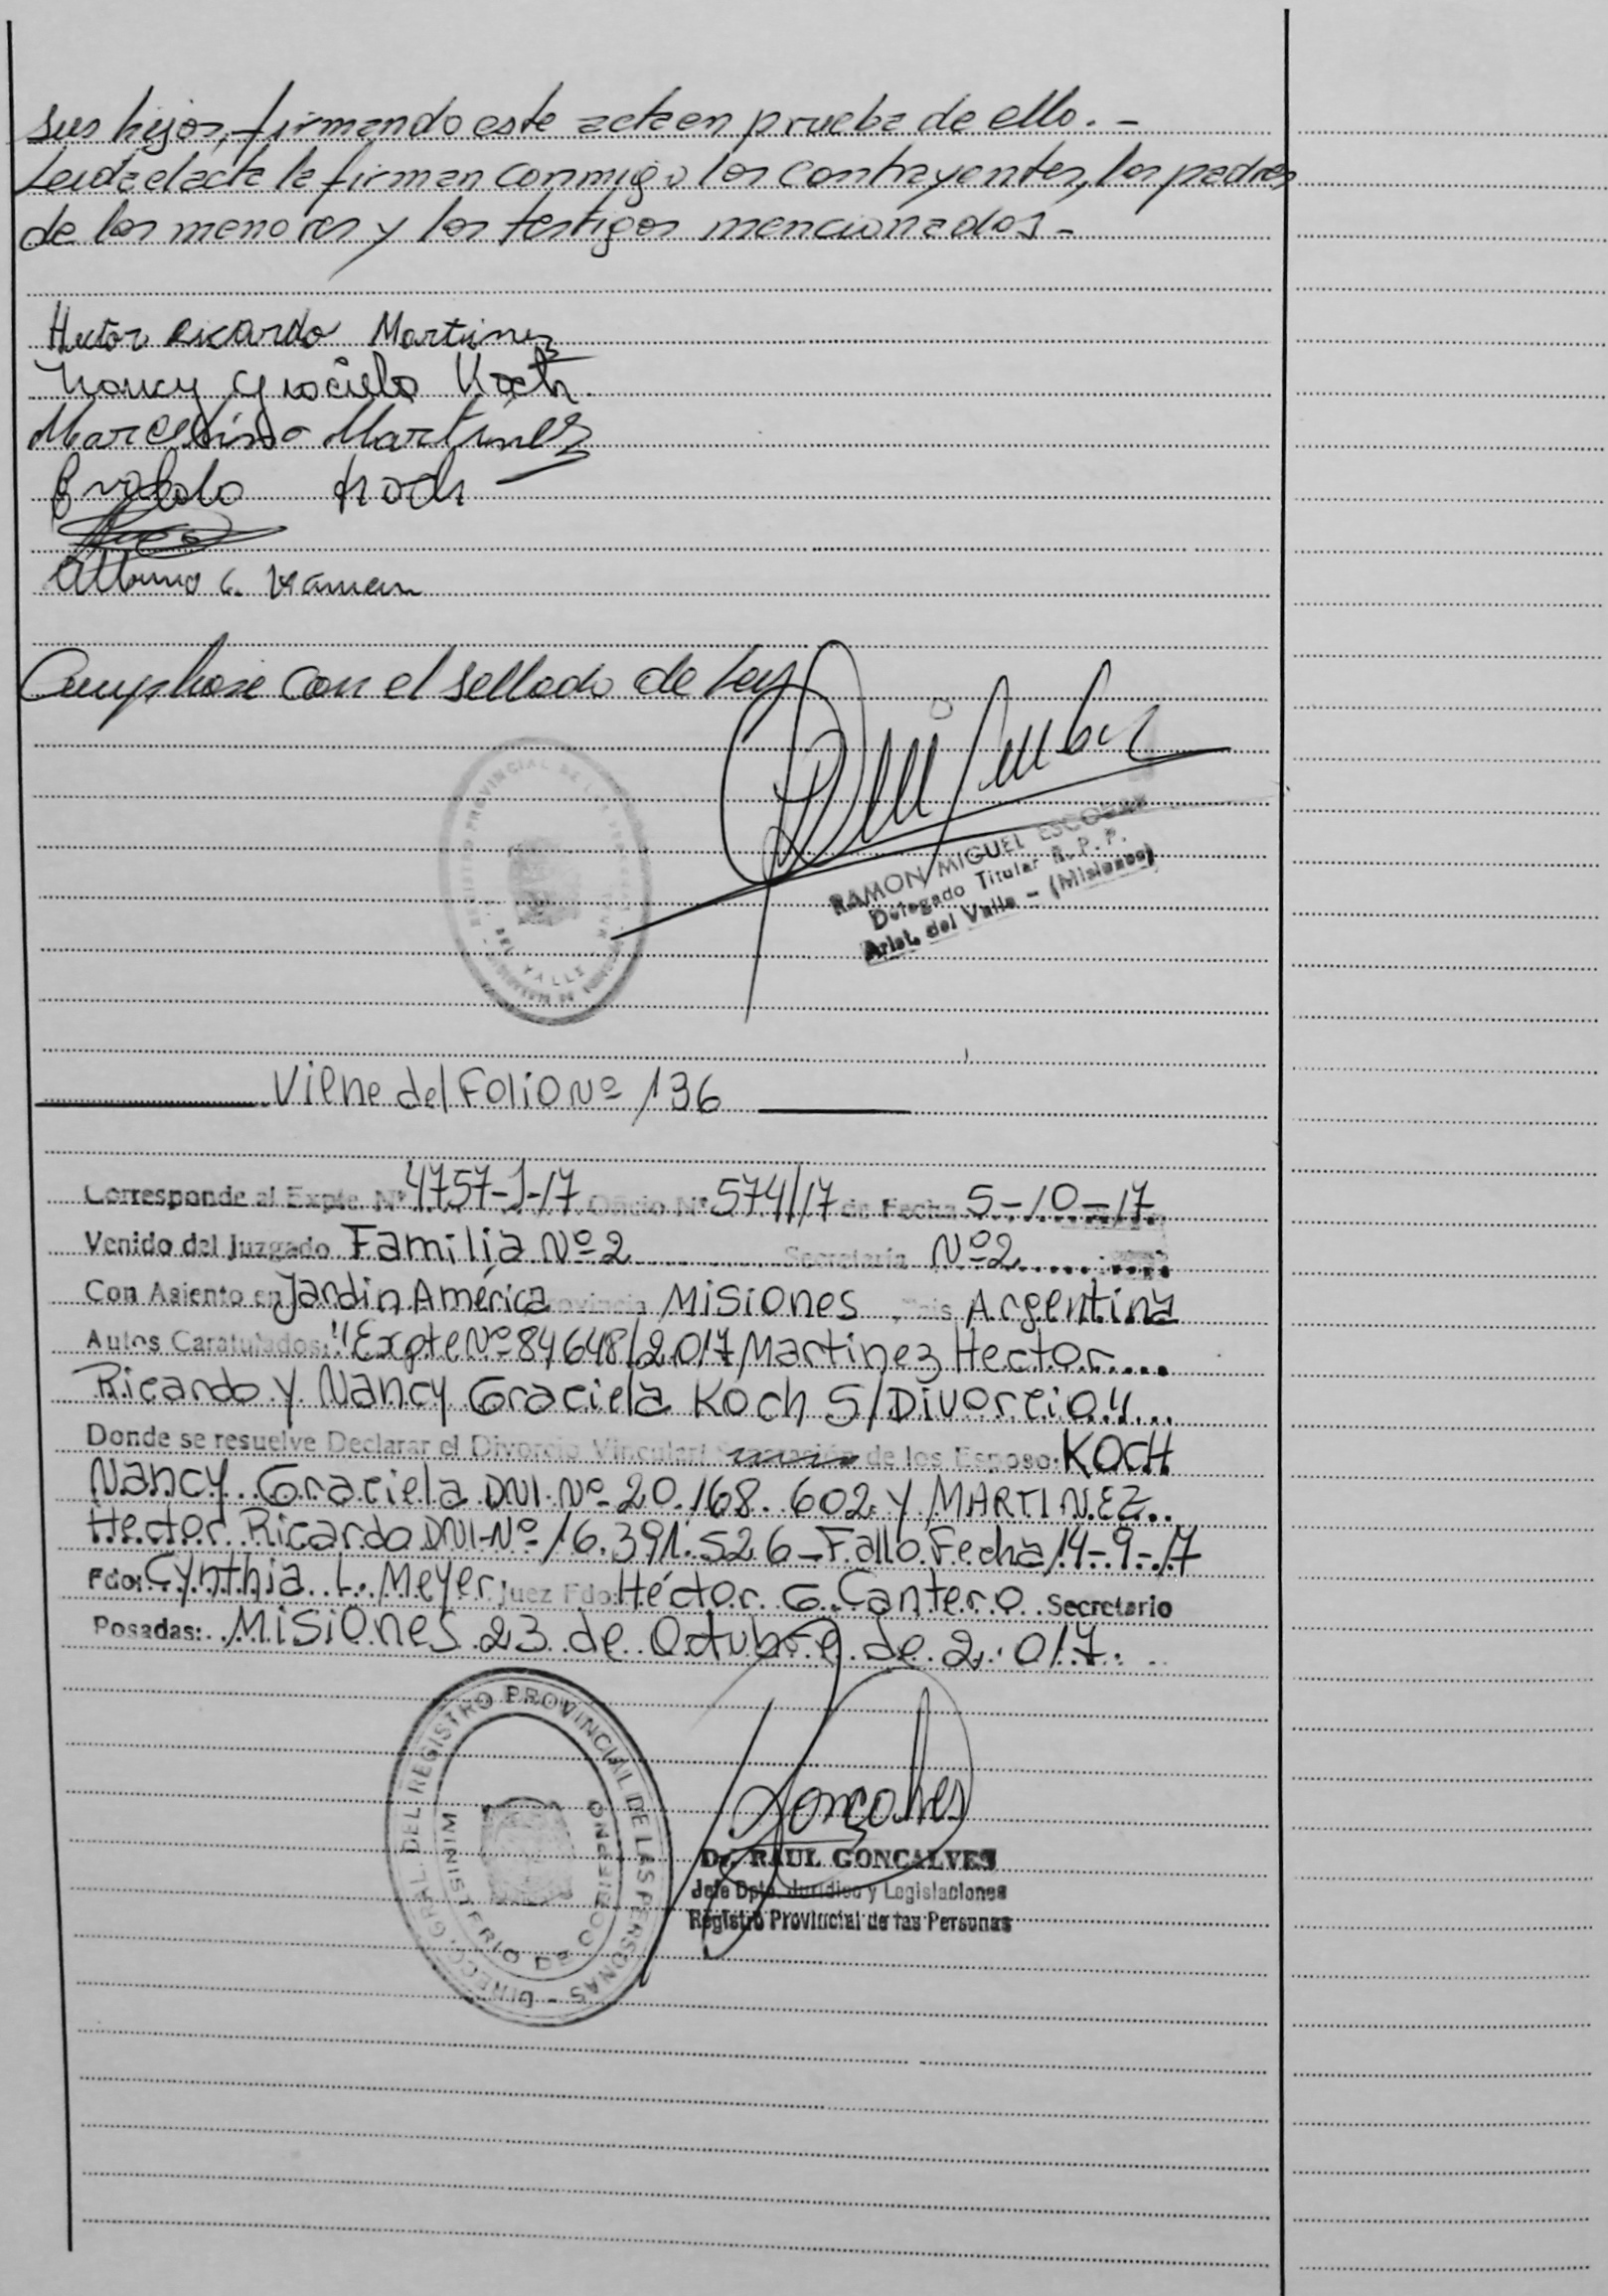 sus hijos, firmando este acta en prueba de ello. -
Leida el acta la firman conmigo los contrayentes, los padres
de los menores y los testigos mencionados -
Hector Ricardo Martinez
Nancy Graciela Koch
Marcelino Martinez
Koch
Albino C.
Cumplase con el sellado de Ley
REGISTRO PROVINCIAL DE LAS PERSONAS
DEL VALLE
RAMON MIGUEL ESCOBAR
Delegado Titular R. P. P.
Arist. del Valle - (Misiones)
Viene del Folio Nº 136
Corresponde al Expte. Nº 4757-J-17 Oficio Nº 574/17 de Fecha 5-10-17
Venido del Juzgado Familia Nº 2 Secretaría Nº 2
Con Asiento en Jardin América Provincia Misiones, Pais Argentina
Autos Caratulados: "Expte Nº 84648/2017 Martinez Hector
Ricardo y Nancy Graciela Koch S/Divorcio"
Donde se resuelve Declarar el Divorcio Vincular/ de los Esposo: KOCH
Nancy Graciela DNI Nº 20.168.602 y MARTINEZ
Hector Ricardo DNI-Nº 16.391.526 - Fallo Fecha 14-9-17
Fdo: Cynthia L. Meyer Juez Fdo: Héctor G. Cantero Secretario
Posadas: Misiones 23 de Octubre de 2.017.
DIRECC. GRAL. DEL REGISTRO PROVINCIAL DE LAS PERSONAS -
MINISTERIO DE GOBIERNO
Goncalves
Dr. RAUL GONCALVES
Jefe Dpto. Jurídico y Legislaciones
Registro Provincial de las Personas